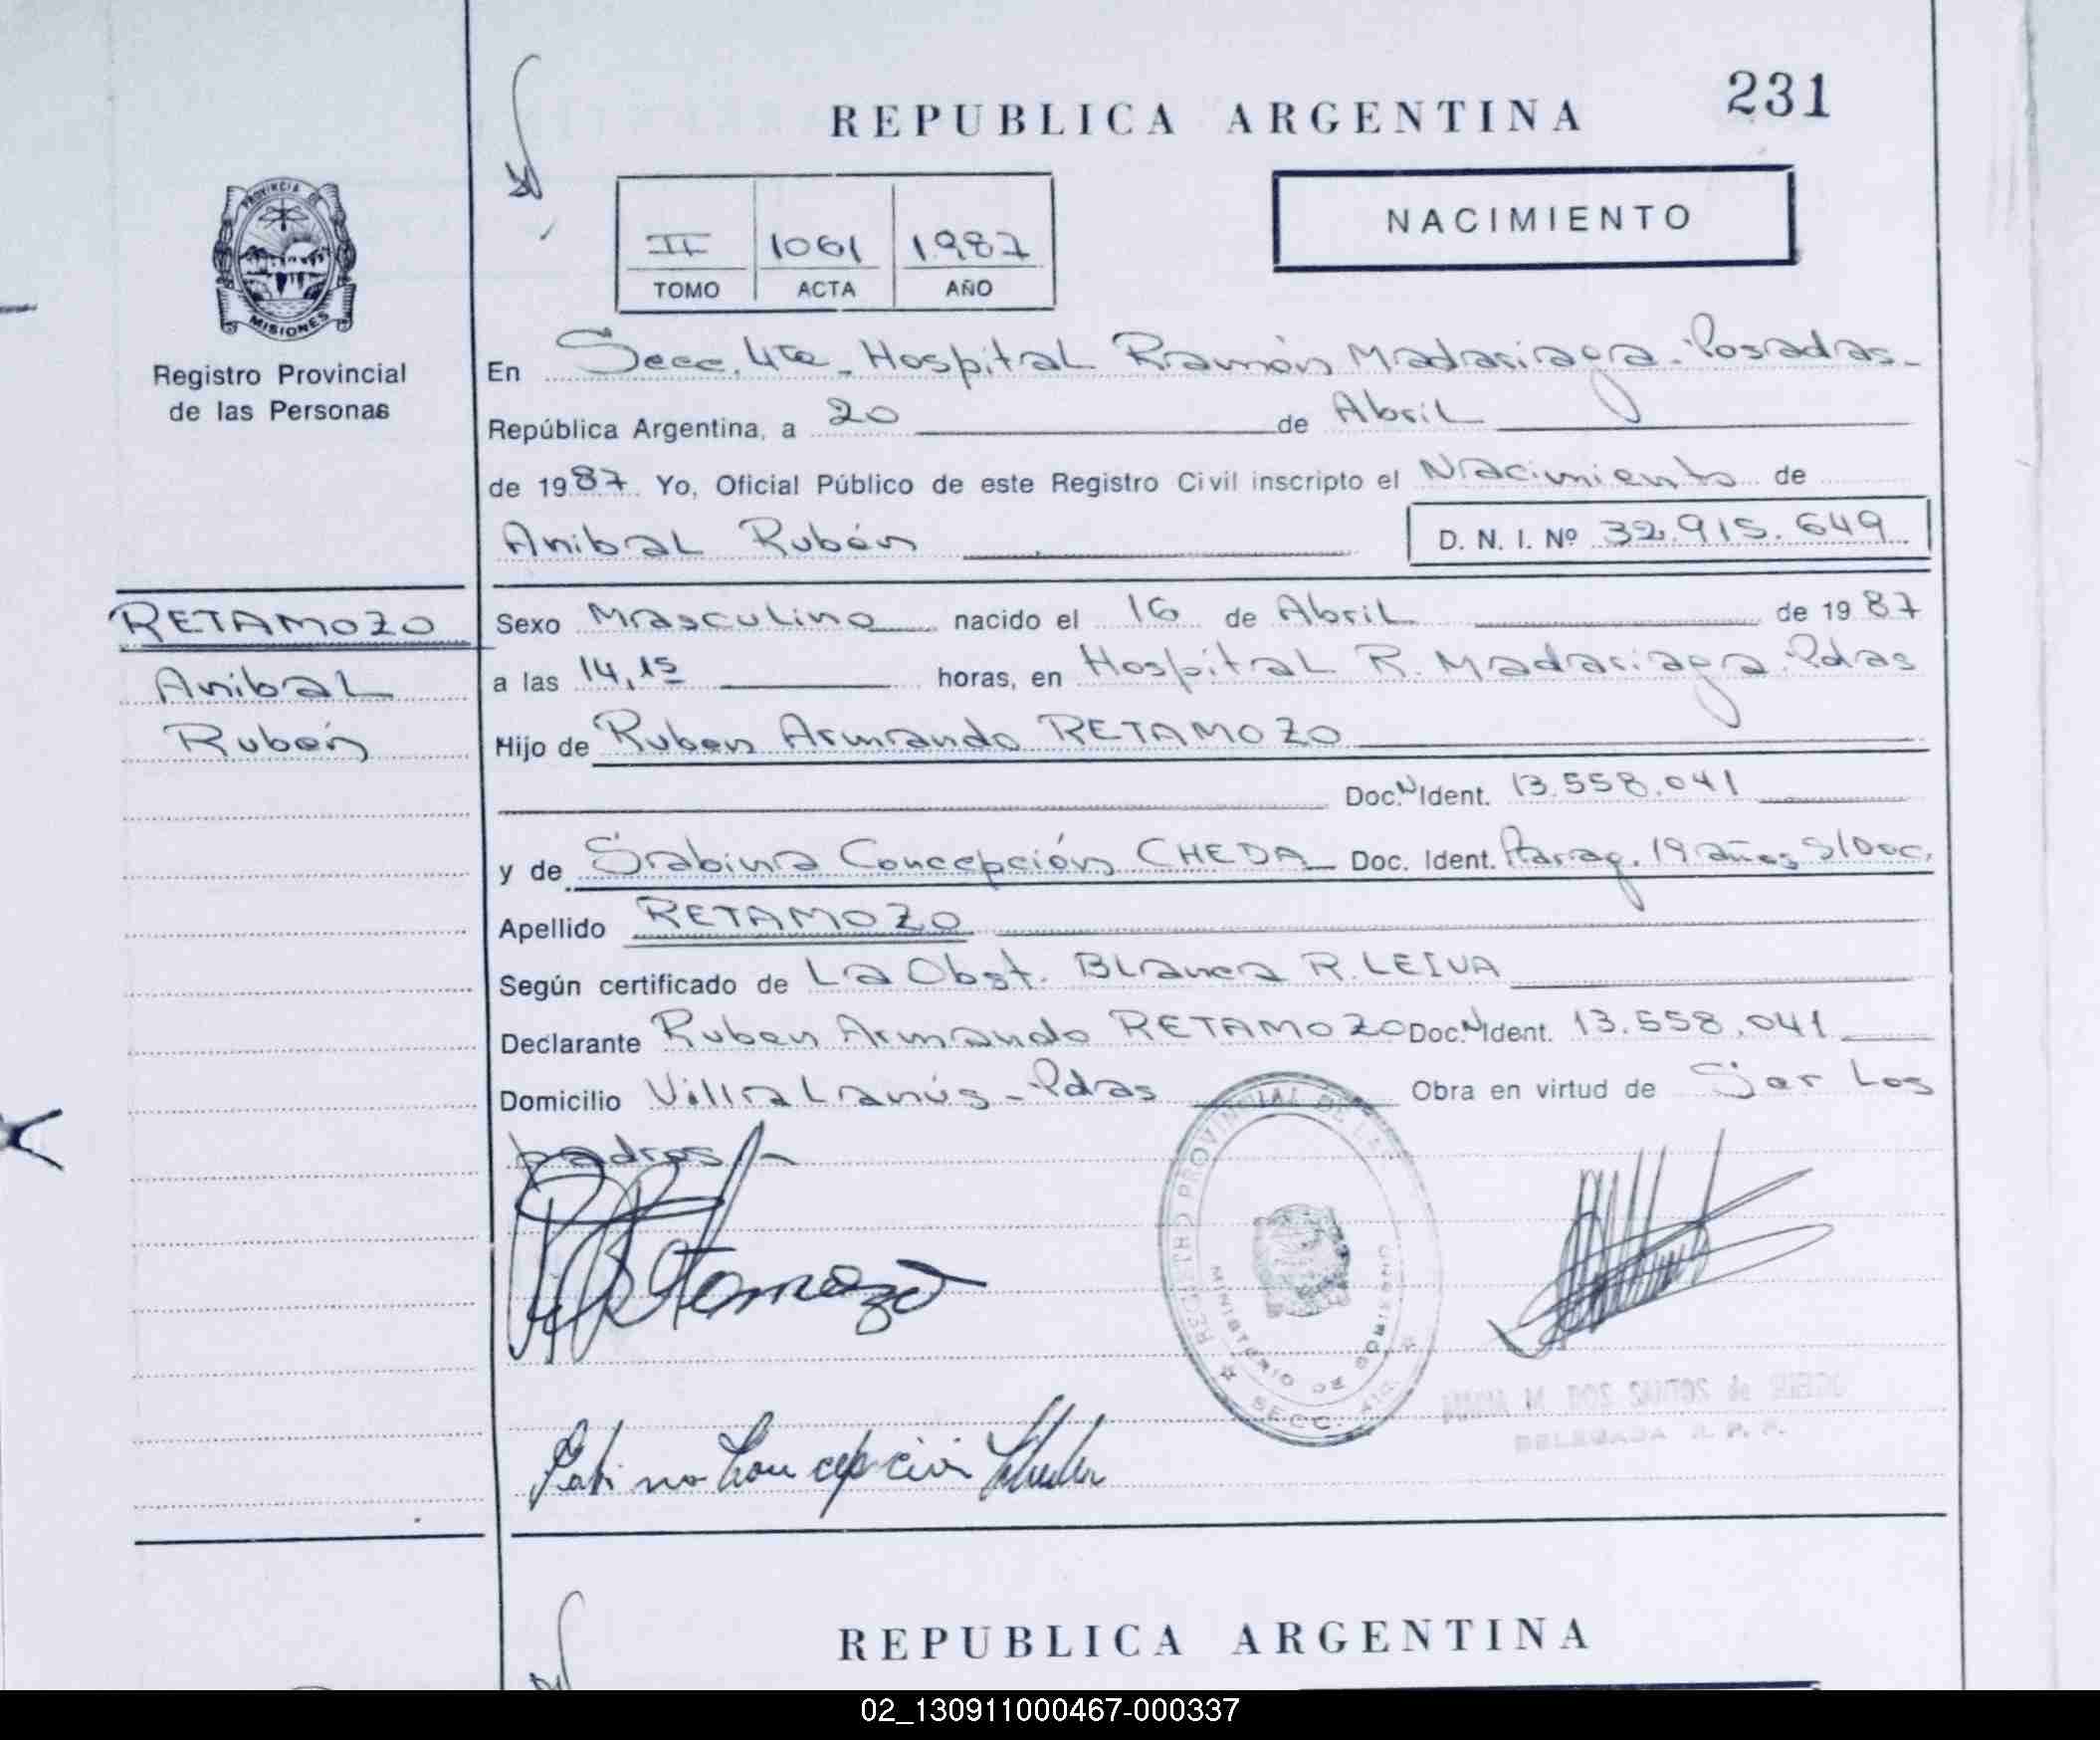 231
REPUBLICA ARGENTINA
NACIMIENTO
II 1061 1987
TOMO ACTA AÑO
PROVINCIA
MISIONES
Registro Provincial
de las Personas
En Secc. 4ta - Hospital Ramón Madariaga - Posadas -
República Argentina, a 20 de Abril
de 1987 Yo, Oficial Público de este Registro Civil inscripto el Nacimiento de
Anibal Rubén D. N. I. Nº 32.915.649
RETAMOZO
Anibal
Rubén
Sexo Masculino nacido el 16 de Abril de 1987
a las 14,15 horas, en Hospital R. Madariaga. Pdas
Hijo de Ruben Armando RETAMOZO
Doc. N Ident. 13.558.041
y de Sabina Concepción CHEDA Doc. Ident. Parag. 19 años S/Doc.
Apellido RETAMOZO
Según certificado de La Obst. Blanca R. LEIVA
Declarante Ruben Armando RETAMOZO Doc. N Ident. 13.558.041
Domicilio Villa Lanús - Pdas Obra en virtud de Ser Los
padres/-
REGISTRO PROVINCIAL DE LAS
MINISTERIO DE GOBIERNO
SECC. 4ta
DOS SANTOS de
DELEGADA R. P. P.
REPUBLICA ARGENTINA
02_130911000467-000337